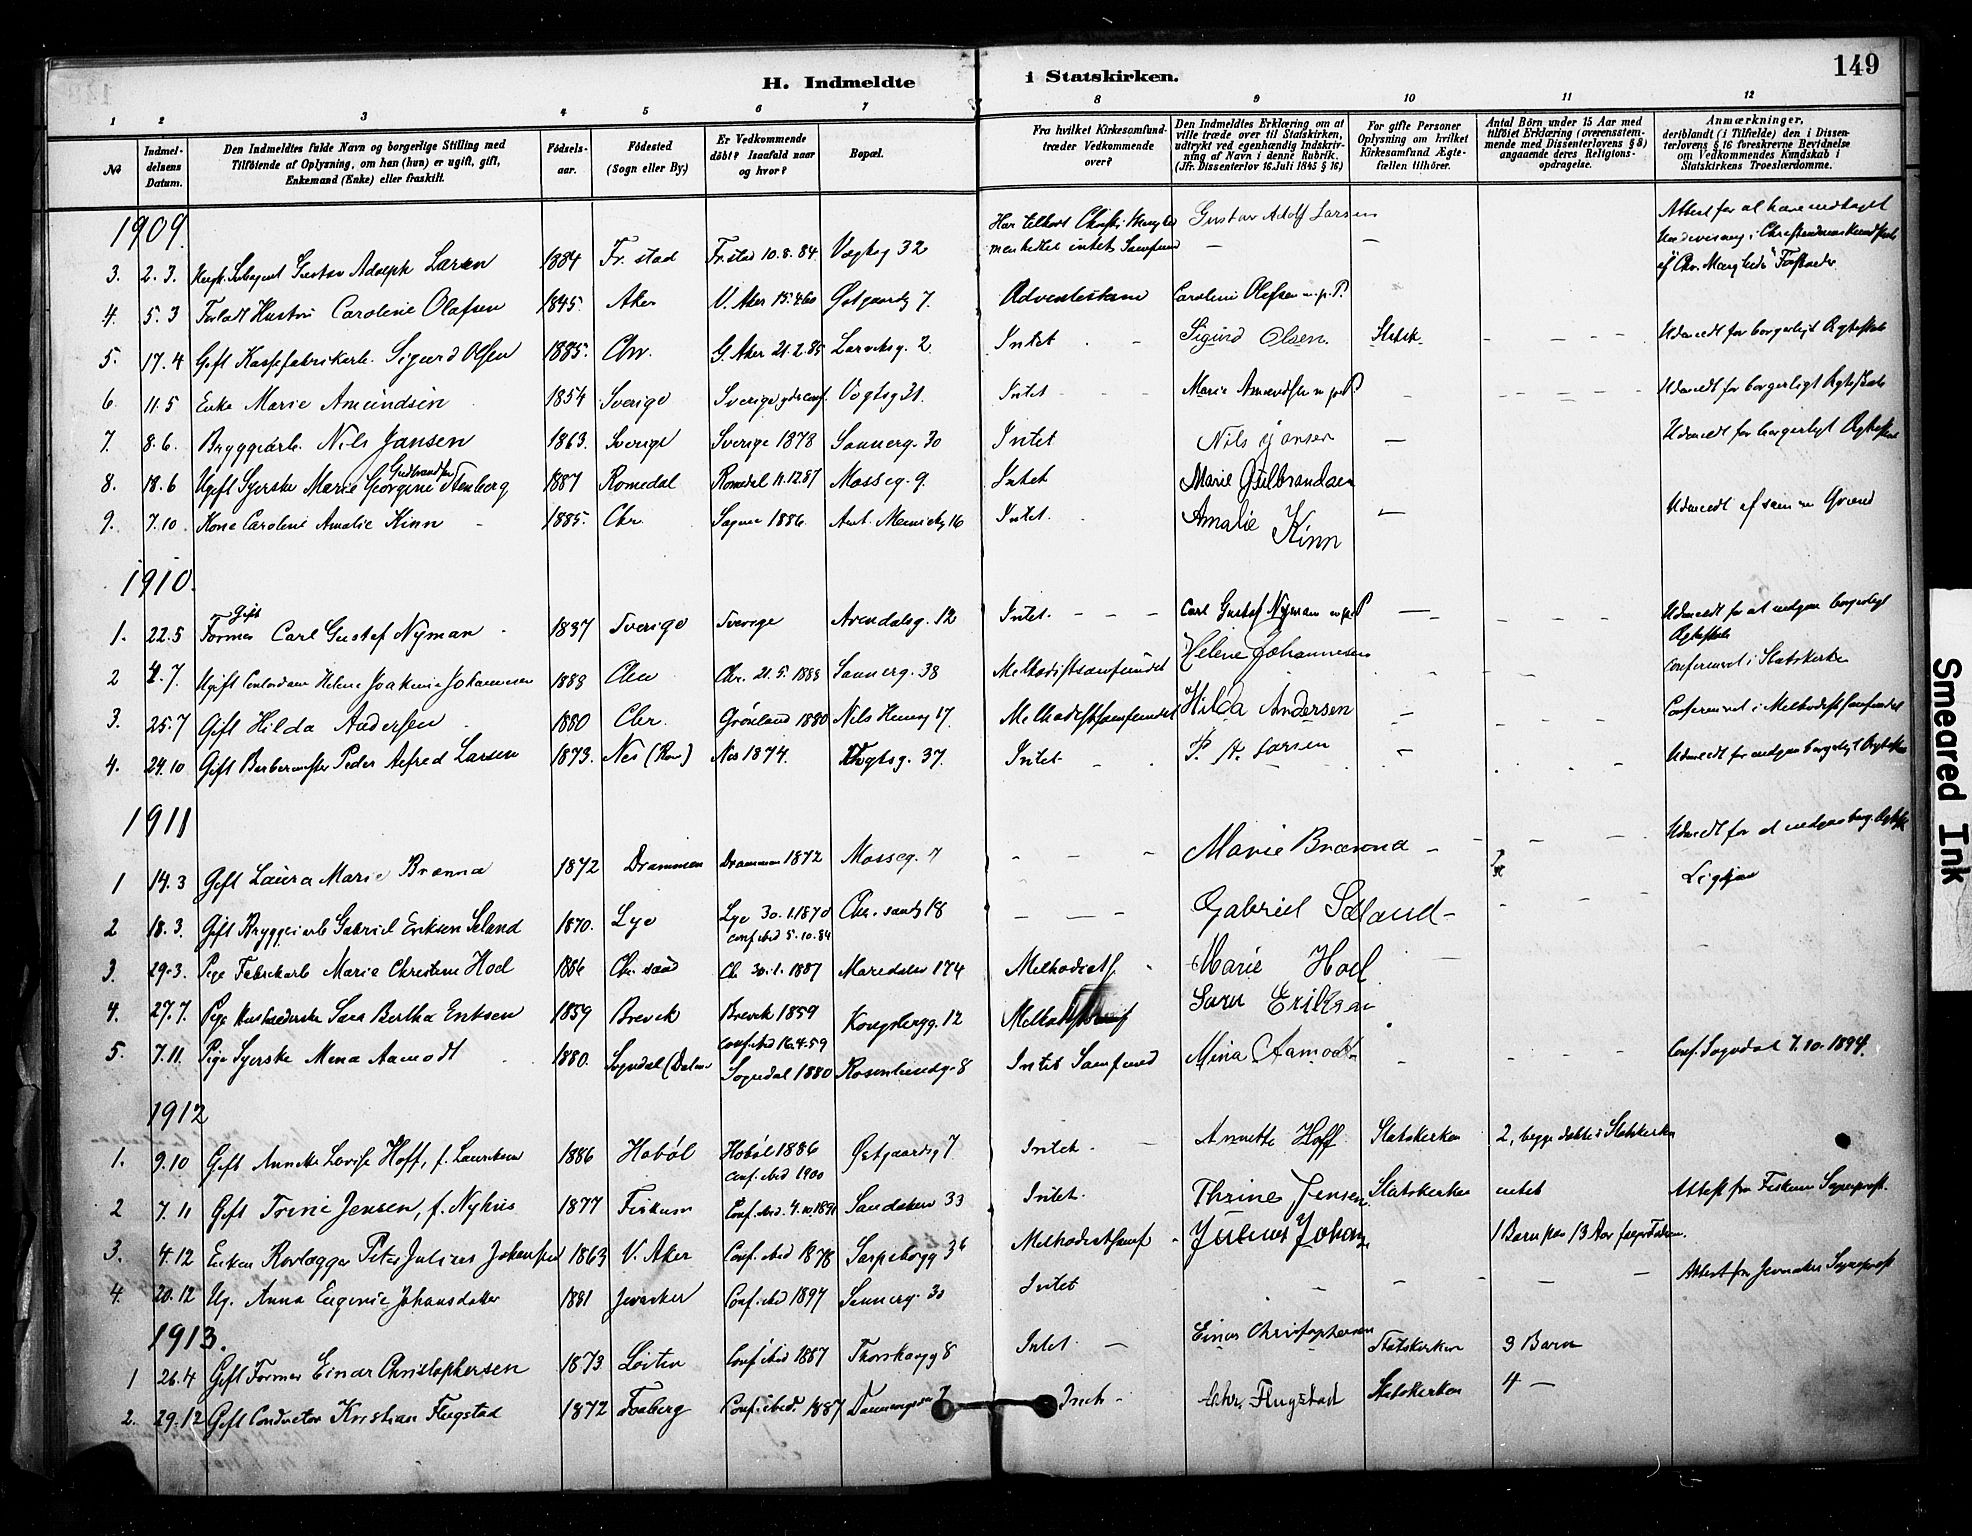 149
H. Indmeldte i Statskirken.
1 2 3 4 5 6 7 8 9 10 11 12
No
Indmeldelsens Datum.
Den Indmeldtes fulde Navn og borgerlige Stilling med
Tilföiende af Oplysning, om han (hun) er ugift, gift,
Enkemand (Enke) eller fraskilt.
Födselsaar.
Födested
(Sogn eller By.)
Er Vedkommende
döbt? Isaafald naar
og hvor?
Bopæl.
Fra hvilket Kirkesamfund
træder Vedkommende
over?
Den Indmeldtes Erklæring om at
ville træde over til Statskirken,
udtrykt ved egenhændig Indskrivning af Navn i denne Rubrik.
(Jfr. Dissenterlov 16 Juli 1845 § 16)
For gifte Personer
Oplysning om hvilket
Kirkesamfund Ægtefællen tilhörer.
Antal Börn under 15 Aar med
tilföiet Erklæring (overensstemmende med Dissenterlovens § 8)
angaaende deres Religionsopdragelse.
Anmærkninger,
deriblandt (i Tilfælde) den i Dissenterlovens § 16 foreskrevne Bevidnelse
om Vedkommendes Kundskab i
Statskirkens Troeslærdomme.
1909.
3. 2.3. Gustav Adolph Larsen 1884 Fr.stad Fr.stad 10.8.84 Vogtsg 32 Gustav Adolf Larsen
4. 5.3 Caroline Olafsen 1845. Aker V. Aker Østgaardsg 7. Caroline Olafsen m.p.P.
5. 17.4 Gift Sigurd Olsen 1885. Chr. G. Aker 21.2.85 Larviksg. 2. Intet Sigurd Olsen. Statsk. Udmeldt for borgerligt Ægteskab
6 11.5 Enke Marie Amundsen 1854 Sverige Sverige Vogtsg 31. Intet Marie Amundsen m.p.P. Udmeldt for borgerligt Ægteskab
7. 8.6. Bryggeiarb. Nils Jansen 1863. Sverige Sverige 1878 Sannerg. 30 Intet Nils Jansen Udmeldt for borgerligt Ægteskab
8. 18.6 Ugift Syerske Marie Georgine Gudbrandsen Stenberg 1887 Romedal Romedal 11.12.87 Mosseg. 9. Intet Marie Gulbrandsen
9. 7.10. Kone Caroline Amalie Kinn 1885. Chr. Sagene 1886. 16 Intet. Amalie Kinn Udmeldt af samme Grund
1910.
1. 22.5 Gift Former Carl Gustef Nyman 1837 Sverige Sverige Arendalsg. 12 Intet. Carl Gustef Nyman m.p.P Udmeldt for at indgaa borgerligt Ægteskab
2 4.7. Ugift Helene Joakime Johannesen 1888 Chr. Chr. 21.5.1888 Sannerg. 38 Methodistsamfundet Helene Johannesen confirmeret i Statskirke
3. 25.7 Gift Hilda Andersen 1880 Chr. Grönland 1880 Nils Hennig 17. Methodistsamfundet Hilda Andersen Confirmeret i Methodistsamfundet
4. 24.10 Gift Barbermester Peder Alfred Larsen 1873. Nes (Rom.) Nes 1874. Vogtsg. 37. Intet P. A. Larsen Udmeldt for indgaa borgerligt Ægteskab
1911
1 14.3 Gift Laura Marie Brænna 1872 Drammen Drammen 1872 Mosseg. 7 Marie Brænna
2 18.3. Gift Bryggeiarb Gabriel Eriksen Seland 1870. Lye Lye 30.1.1870 conf. ibid 5.10.84 Chr.sandg 18 Gabriel Seland
3. 29.3. Pige Fabrikarb Marie Christine Hoel 1886 Chr.sand Chr 30.1.1887 Maridalsv 174 Methodistf. Marie Hoel
4. 27.7. Pige Husholderske Sara Bertha Eriksen 1859 Brevik Brevik 1859 conf. ibid 16.4.59 Kongsbergg. 12 Sara Eriksen
5. 7.11. Pige Syerske Mina Aamodt 1880. Sogndal (Dalane Sogndal 1880 Rosenlundg. 8 Intet Samfund Mina Aamodt Conf. Sogndal 7.10.1894.
1912
1. 9.10 Gift Annette Lovise Hoff, f. Lauritsen 1886 Haböl Haböl 1886 conf. ibid 1900 Østgaardsg 7 Intet. Annette Hoff Statskirken 2, begge döbte i Statskirken
2 7.11 Gift Trine Jensen, f. Nyhus 1877 Fiskum Conf. ibid. 4.10.1891 Sandakerv 33 Intet. Thrine Jensen Statskirken intet Attest fra Fiskum Sogneprest.
3. 4.12 Enkem Rörlægger Peter Julius Johansen 1863 V. Aker Conf. ibid 1878 Sarpsborgg 36 Methodistsamf Julius Johan 1 Barn paa 13 Aar
4. 20.12 Ug. Anna Eugenie Johansdatter 1881 Jevnaker Conf. ibid 1897 Sannerg. 30 Intet Attest fra Jevnaker Sogneprest
1913.
1 26.4 Gift Former Einar Christophersen 1873 Löiten Conf. ibid 1887 Thorshovg 8 Intet Einar Christophersen Statskirken 3 Barn
2. 29.12 Gift Conductor Kristian Flugstad 1872 Faaberg Conf. ibid. 1887 Intet Flugstad Statskirken 4 —
Smeared Ink